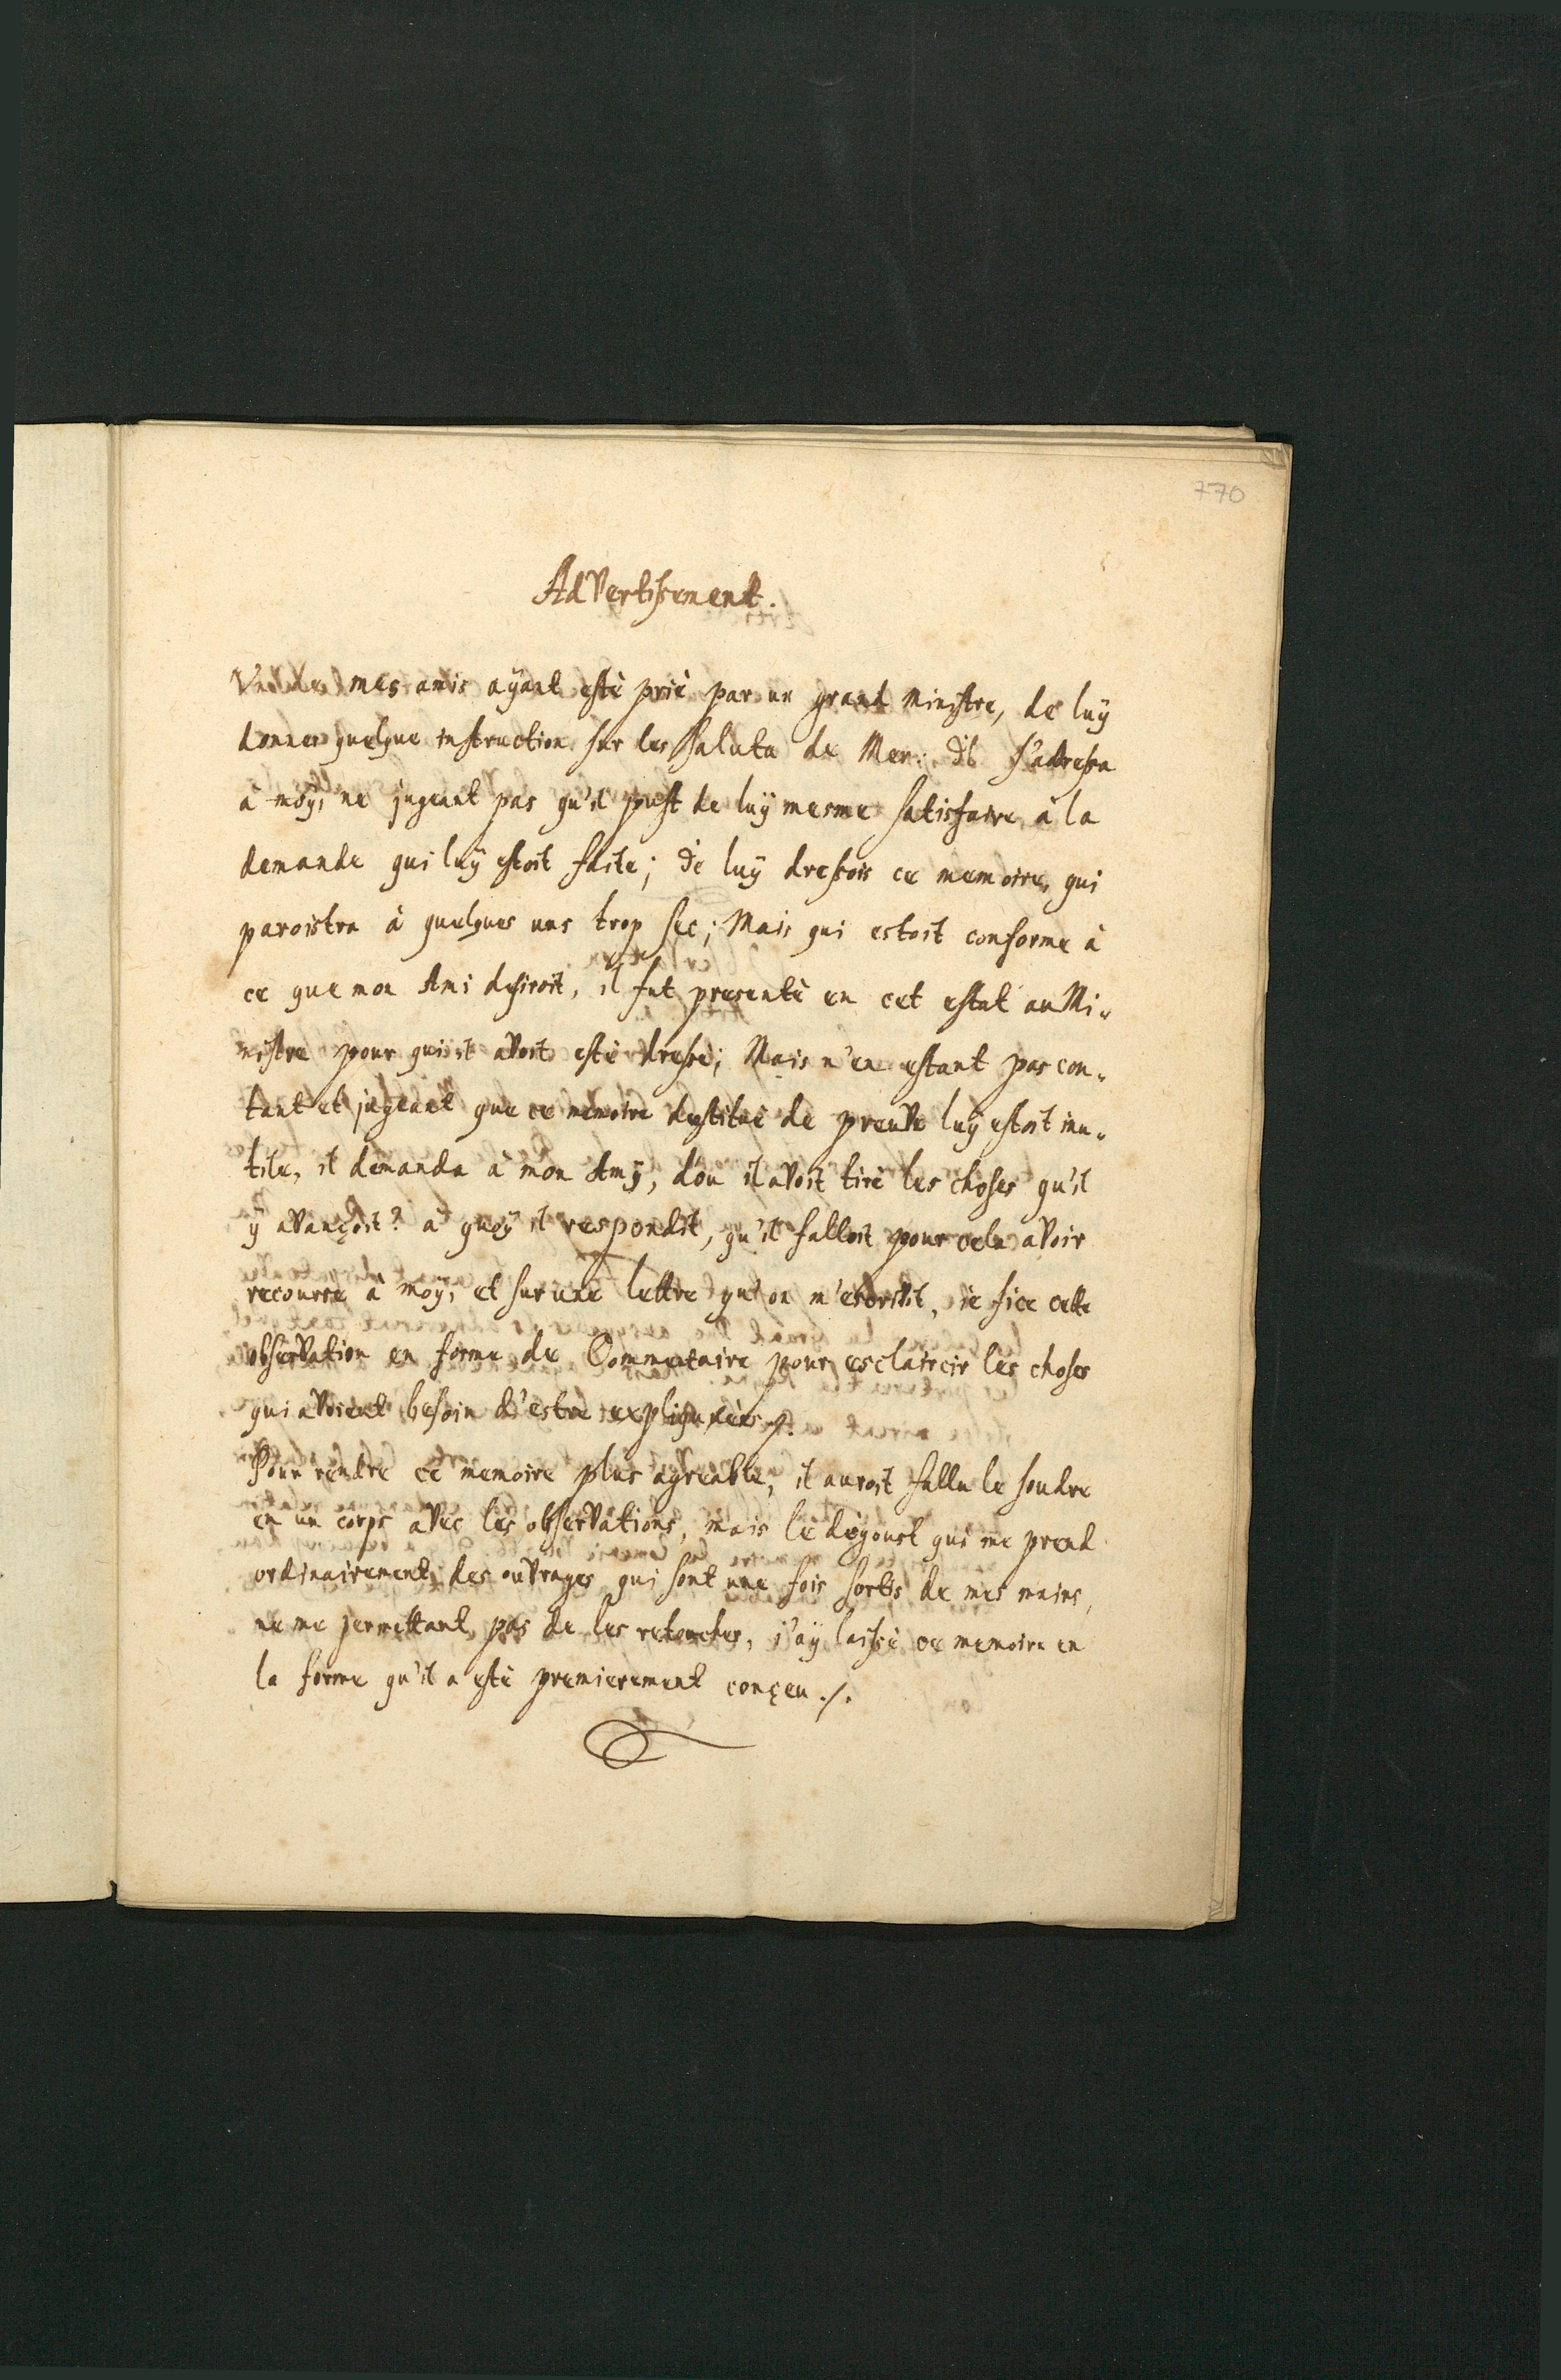 770
Advertissement.
Vn de mes amis aÿant esté prié par un grand Ministre, de luÿ
donner quelque instruction sur les saluts de Mer. Il s'adressa
à moÿ, ne jugeant pas qu'il pust de luÿ mesme satisfaire à la
demande qui luÿ estoit faite; Ie luÿ dressois ce memoire, qui
paroistra à quelques uns trop sec; Mais qui estoit conforme à
ce que mon Ami desiroit, il fut presenté en cet estat au Mi„
nistre pour qui it avoit esté dressé; Mais n'en estant pas con„
tant et jugeant que ce memoire destitué de preuve luÿ estoit inu„
tile, il demanda à mon Amÿ, d'ou il avoit tiré les choses qu'il
ÿ avançoit? à quoÿ il respondit, qu'il falloit pour cela avoir
recourre à moÿ, et sur une lettre qu'on m'escrivit, ie fice cette
observation en forme de Commentaire pour esclaircir les choses
qui avoient besoin d'estre expliquées./.
Pour rendre ce memoire plus agreable, il auroit fallu le fondre
en un corps avec les observations, mais le dégoust qui me prend
ordinairement des ouvrages qui sont une fois sortis de mes mains,
ne me permettant pas de les retoucher, j'aÿ laissé ce memoire en
la forme qu'il a esté premierement conçeu./.